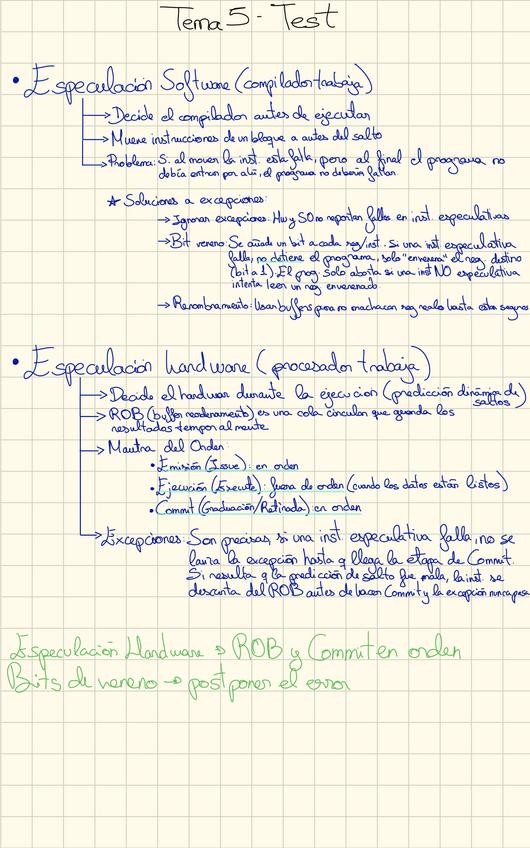 Tema 5 - Test
• Especulación Software (compilador trabaja)
→ Decide el compilador antes de ejecutar
→ Mueve instrucciones de un bloque a antes del salto
→ Problema: Si al mover la inst. esta falla, pero al final el programa no
debía entrar por ahí, el programa no debería fallar
★ Soluciones a excepciones:
→ Ignorar excepciones: Hw y SO no reportan fallos en inst. especulativas
→ Bit veneno: Se añade un bit a cada reg/inst. Si una inst especulativa
falla, no detiene el programa, solo "envenena" el reg. destino
(bit a 1). El prog. solo aborta si una inst NO especulativa
intenta leer un reg envenenado.
→ Renombramiento: Usar buffers para no machacar reg reales hasta estar seguros
• Especulación hardware (procesador trabaja)
→ Decide el hardware durante la ejecucion (predicción dinámica de
saltos)
→ ROB (buffer reordenamiento) es una cola circular que guarda los
resultados temporalmente
→ Mantra del Orden:
• Emisión (Issue): en orden
• Ejecución (Execute): fuera de orden (cuando los datos están listos)
• Commit (Graduación/Retirada): en orden
→ Excepciones: Son precisas, si una inst. especulativa falla, no se
lanza la excepción hasta q llega la etapa de Commit.
Si resulta q la predicción de salto fue mala, la inst. se
descarta del ROB antes de hacer Commit y la excepción nunca pasa
Especulación Hardware → ROB y Commit en orden
Bits de veneno → postponer el error